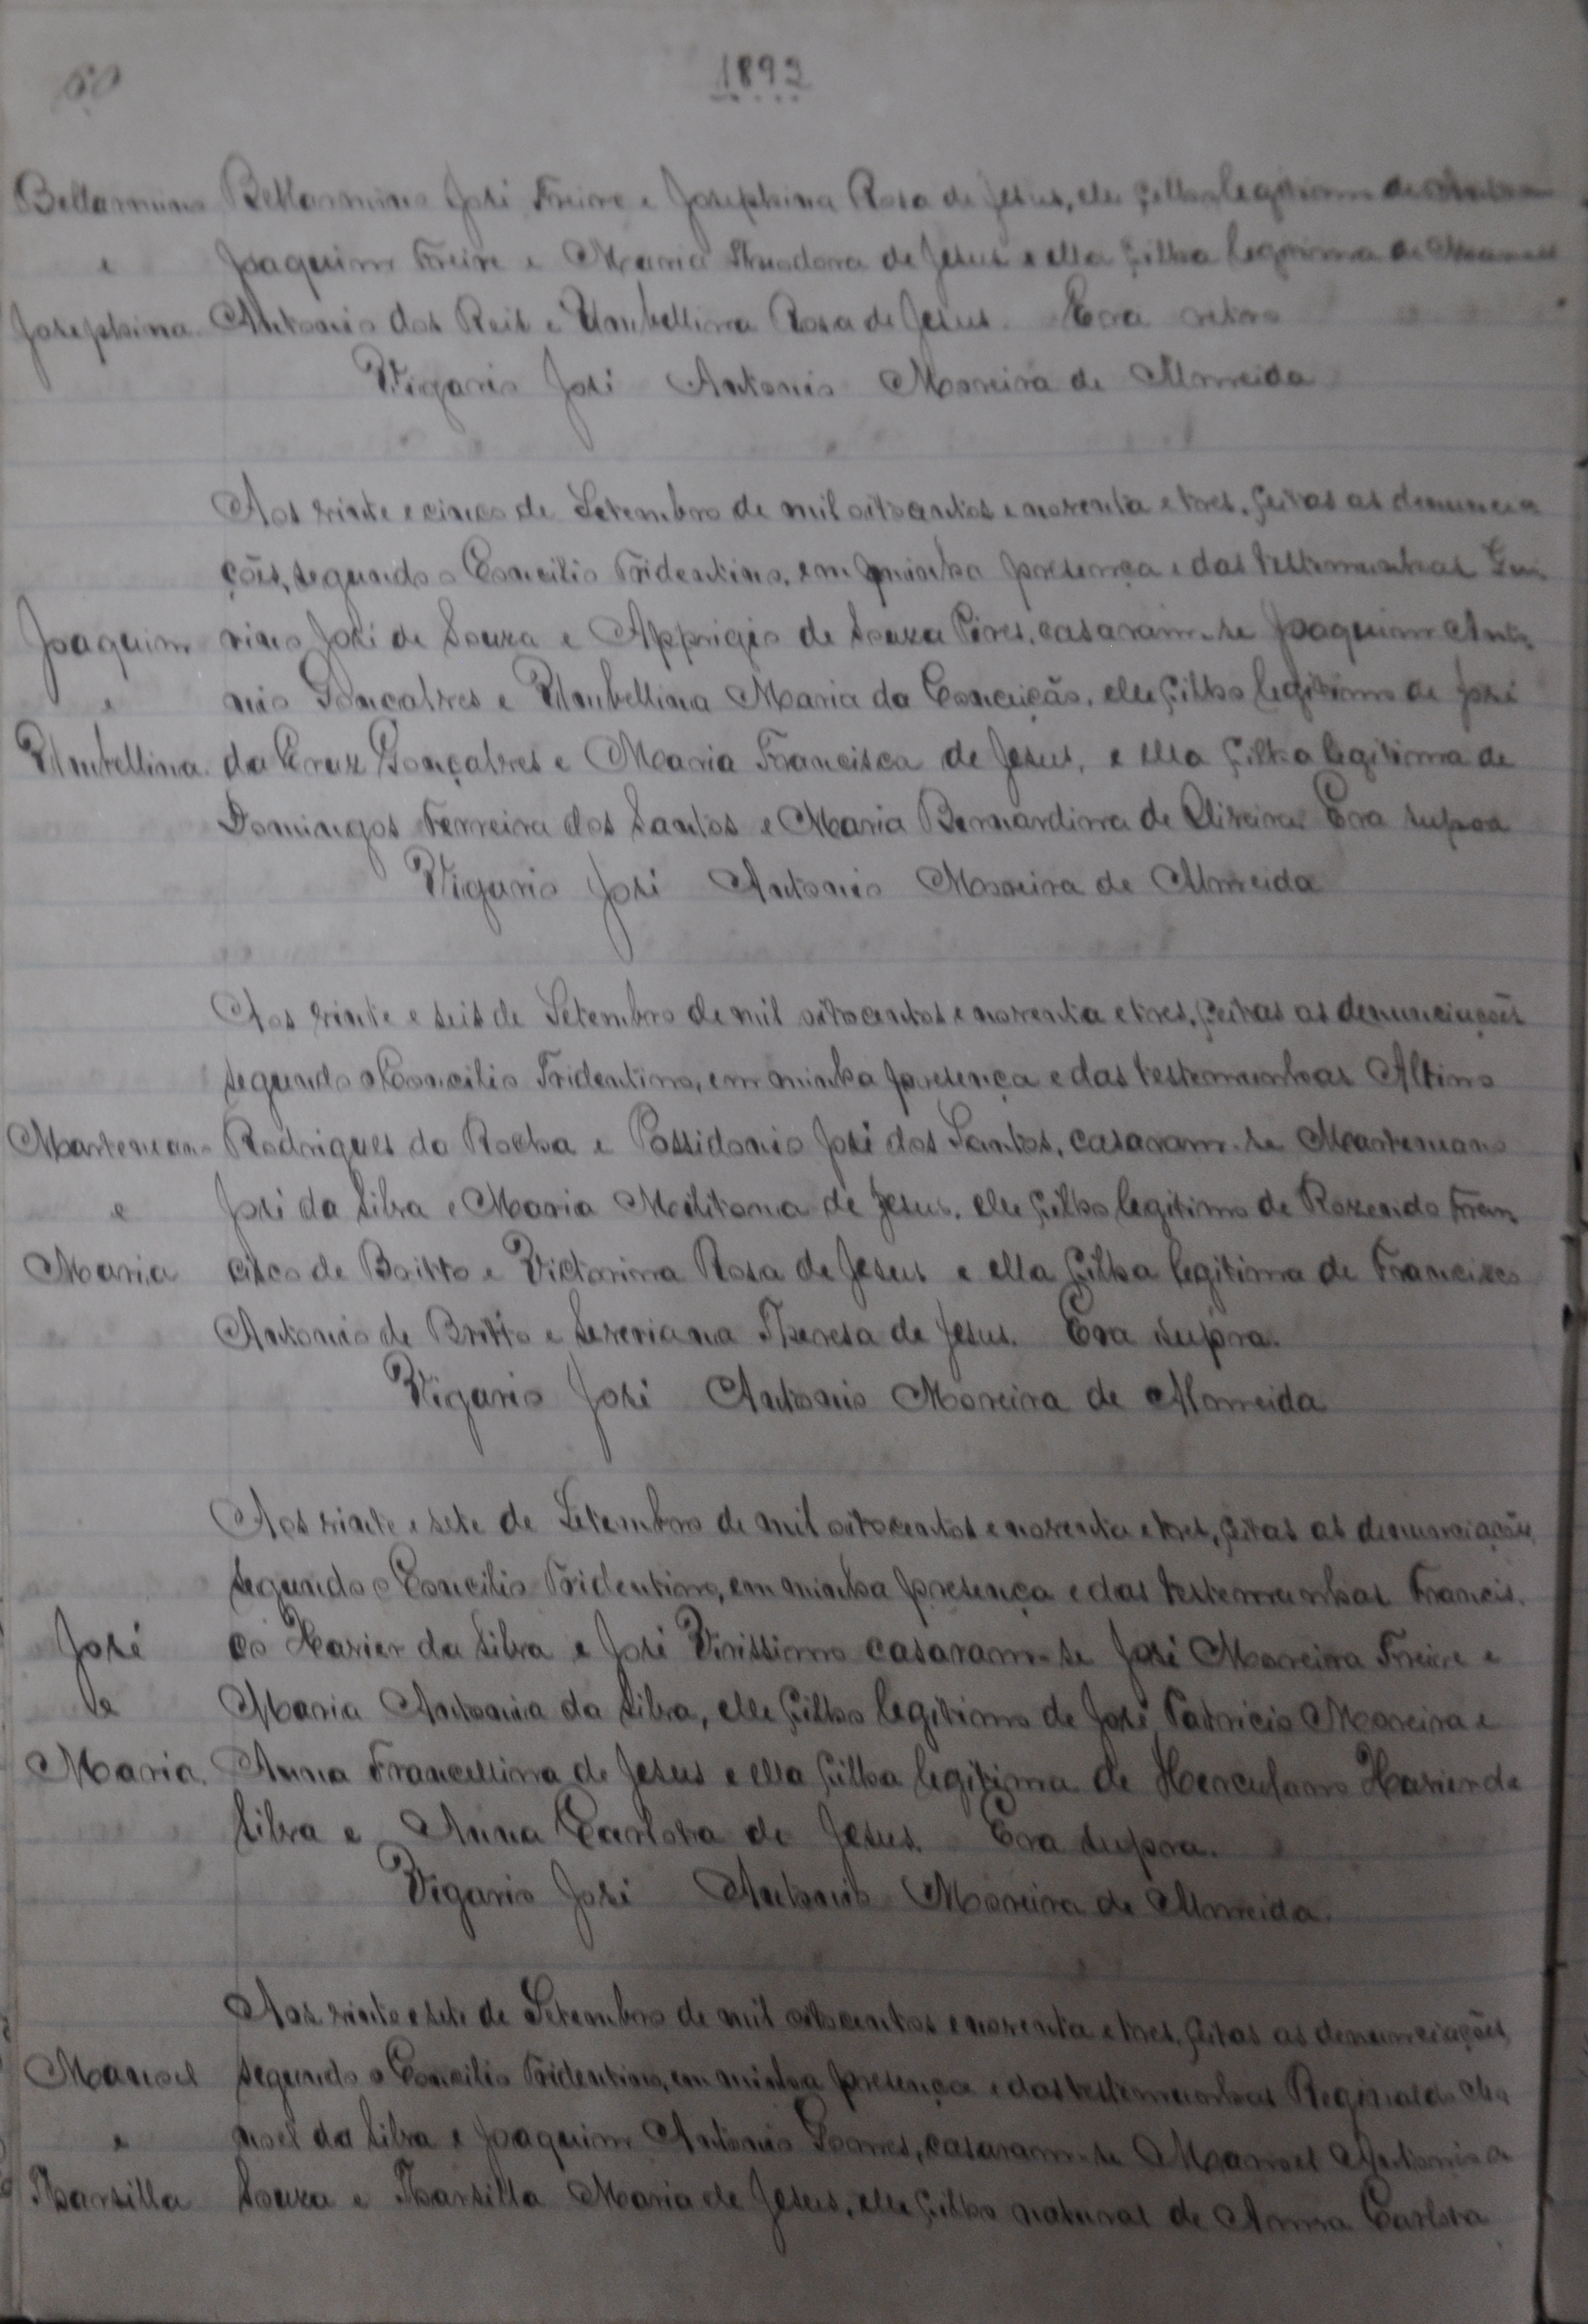 60
1892
Bellarmino Bellarmino José Freire e Josephina Rosa de Jesus, elle filho legitimo de
e Joaquim Freire e Maria Theodora de Jesus e ella filha legitima de Manoel
Josephina. Antonio dos Reis e Umbellina Rosa de Jesus. Era retro
Vigario José Antonio Moreira de Almeida
Aos vinte e cinco de Setembro de mil oitocentos e noventa e tres, feitas as denuncia
ções, segundo o Concilio Tridentino, em minha presença e das testemunhas
Joaquim rino José de Souza e Apprigio de Souza Pires, casaram-se Joaquim Anto
e nio Goncalves e Umbellina Maria da Conceição, elle filho legitimo de José
Umbellina. da Cruz Gonçalves e Maria Francisca de Jesus, e ella filha legitima de
Domingos Ferreira dos Santos e Maria Bernardina de Oliveira. Era supra
Vigario José Antonio Moreira de Almeida
Aos vinte e seis de Setembro de mil oitocentos e noventa e tres, feitas as denunciações
segundo o Concilio Tridentino, em minha presença e das testemunhas Altino
Marteneano Rodrigues da Rocha e Possidonio José dos Santos, casaram-se Marteneano
e José da Silva e Maria Melitona de Jesus, elle filho legitimo de Rozendo Fran
Maria cisco de Britto e Victorina Rosa de Jesus e ella filha legitima de Francisco
Antonio de Britto e Severiana Theresa de Jesus. Era supra.
Vigario José Antonio Moreira de Almeida
Aos vinte e sete de Setembro de mil oitocentos e noventa e tres, feitas as denunciações,
segundo o Concilio Tridentino, em minha presença e das testemunhas Francis.
José co Xavier da Silva e José Virissimo casaram-se José Moreira Freire e
e Maria Antonia da Silva, elle filho legitimo de José Patricio Moreira e
Maria. Anna Francellina de Jesus e ella filha legitima de Herculano Xavier da
Silva e Anna Carlota de Jesus. Era supra.
Vigario José Antonio Moreira de Almeida.
Aos vinte e sete de Setembro de mil oitocentos e noventa e tres, feitas as denunciações,
Manoel segundo o Concilio Tridentino, em minha presença e das testemunhas Reginaldo Ma
e noel da Silva e Joaquim Antonio Gomes, casaram-se Manoel Antonio de
Tharsilla Souza e Tharsilla Maria de Jesus, elle filho natural de Anna Carlota